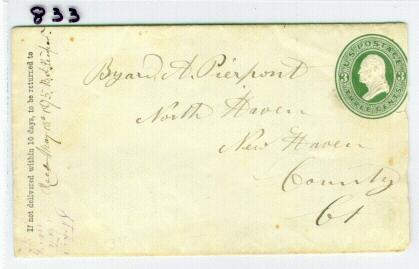 833
U.S. POSTAGE
THREE CENTS
Byard A. Pierpont
North Haven
New Haven
County
Ct
If not delivered within 10 days, to be returned to
Recd May 18 1875